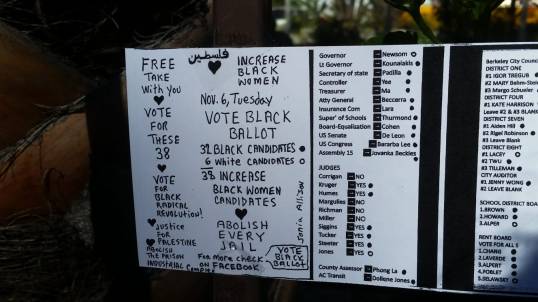 FREE
TAKE
With you ♥
VOTE
FOR
THESE
38
♥
VOTE
FOR
BLACK
RADICAL
REVOLUTION!
♥ Justice
for
♥ PALESTINE
ABOLISH
THE PRISON
INDUSTRIAL Complex
فلسطين
♥ INCREASE
BLACK
WOMEN
NOV. 6, Tuesday
VOTE BLACK
BALLOT
32 BLACK CANDIDATES ●
6 White CANDIDATES ○
38 INCREASE
BLACK WOMEN
CANDIDATES
♥
ABOLISH
EVERY
JAIL
For more check
ON FACEBOOK
VOTE
BLACK
BALLOT
Governor Newsom ○
Lt Governor Kounalakis ●
Secretary of state Padilla ●
Controller Yee ●
Treasurer Ma ●
Atty General Beccerra ●
Insurance Com Lara ●
Super' of Schools Thurmond ●
Board-Equalization Cohen ●
US Senate De Leon ●
US Congress Bararba Lee ●
Assembly 15 Jovanka Beckles ●
JUDGES
Corrigan NO
Kruger YES ●
Humes YES ●
Margulies NO
Richman NO
Miller NO
Siggins YES ●
Tucker YES ●
Streeter YES ●
Jones YES ○
County Assessor Phong La ●
AC Transit Dollene Jones ●
Berkeley City Counc
DISTRICT ONE
#1 IGOR TREGUB ●
#2 MARY Behm-Stei
#3 Margo Schueler
DISTRICT FOUR
#1 KATE HARRISON
Leave #2 & #3 BLANK
DISTRICT SEVEN
#1 Aiden Hill ●
#2 Rigel Robinson ●
#3 Leave Blank
DISTRICT EIGHT
#1 LACEY ○
#2 TWU ●
#3 TILLEMAN ●
CITY AUDITOR
#1 JENNY WONG ●
#2 LEAVE BLANK
SCHOOL DISTRICT BOA
1.BROWN ●
2.HOWARD ●
3.ALPER ●
RENT BOARD
VOTE FOR ALL 5
1.CHANG ●
2.LAVERDE ●
3.ALPERT ●
4.POBLET ●
5.SELAWSKY ○